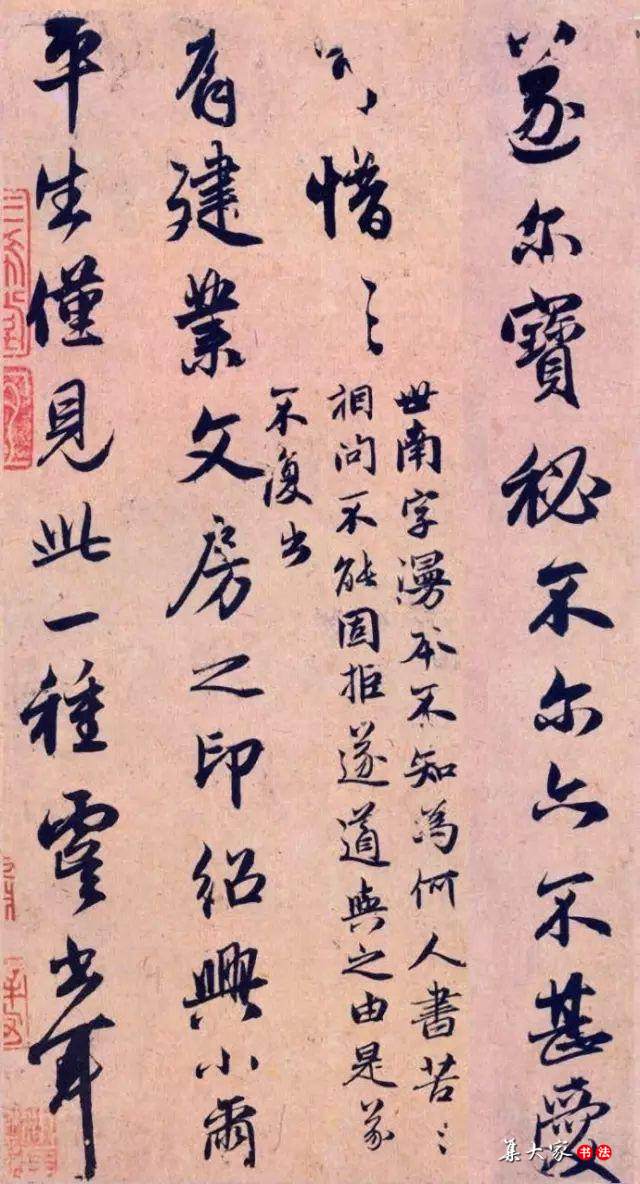 遂尔寶秘不尔亦不甚愛
可惜〻
世南字漫本不知為何人書苦〻
相問不能固拒遂道與之由是遂
不復出
有建業文房之印紹興小爾
平生僅見此一種虞書耳
集大家书法